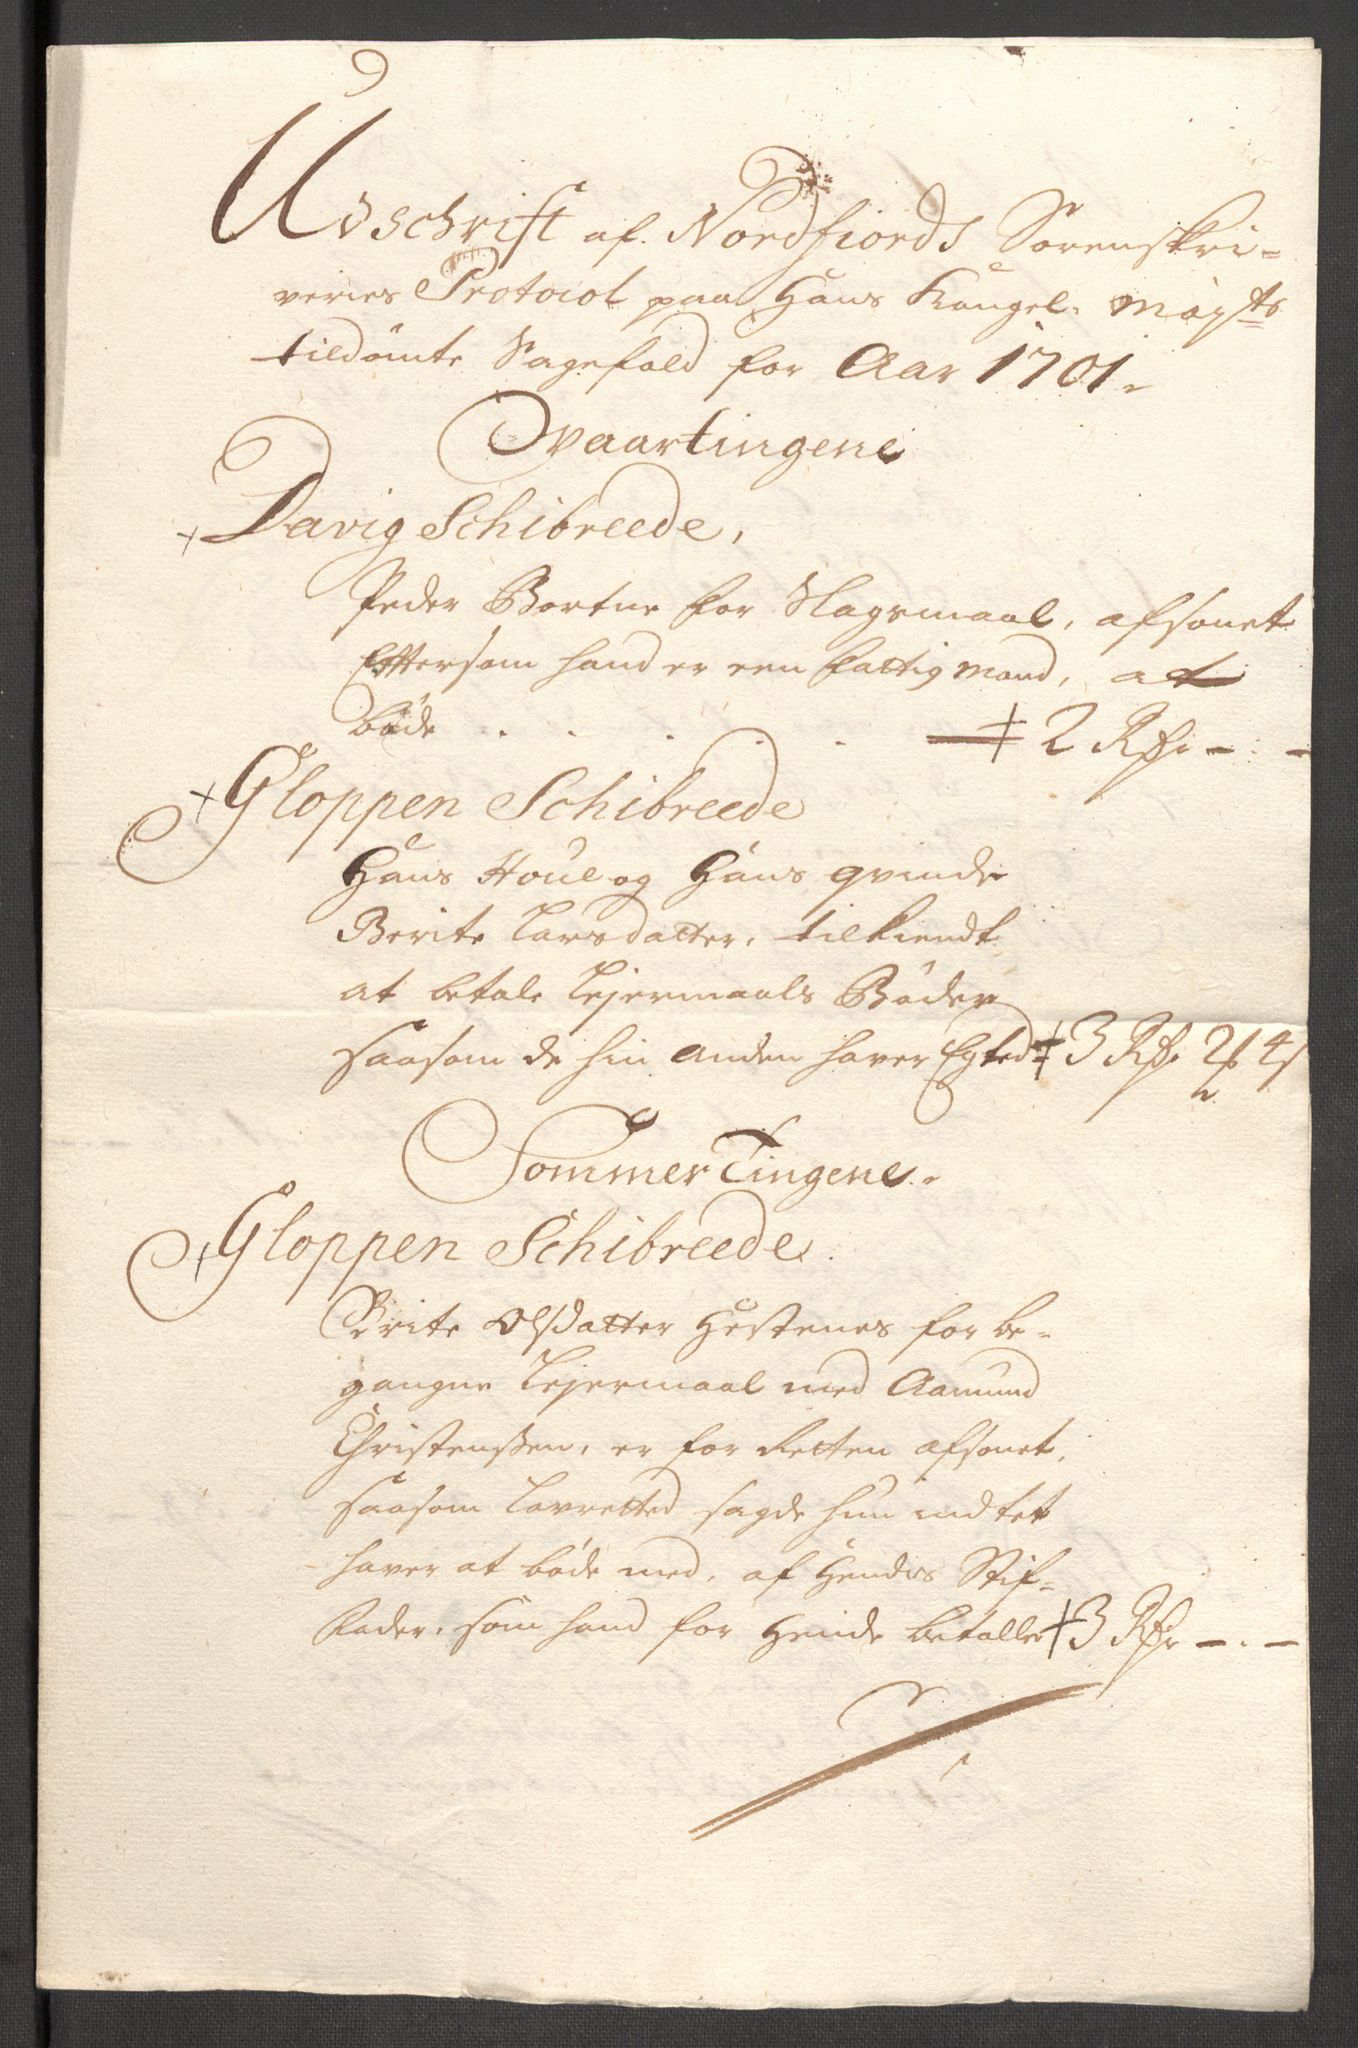 Udschrift af Nordfiords Sorenskri=
veries Protocol paa Hans Kongel. Mayts
tildömte Sagefald for Aar 1701.
Vaartingene
Davig Schibreede,
Peder Bortne for Slagsmaal, afsonet
Efftersom hand er een fattig Mand, at
böde . . . . . 2 Rdr - . -
Gloppen Schibreede
Hans Houl og Hans qvinde
Berite Larsdatter, tilkiendt
at betale Lejermaals Böder
saasom de hin anden haver Egted 3 Rdr 2 4
Sommer Tingene.
Gloppen Schibreede.
Brite Olsdatter Hestenes for be=
gangne Lejermaal med Aamund
Christenßen, er for Retten afsonet,
saasom Lavretted sagde hun indtet
haver at böde med, af Hendes Stif=
fader, som hand for Hende betalle 3 Rdr - . -